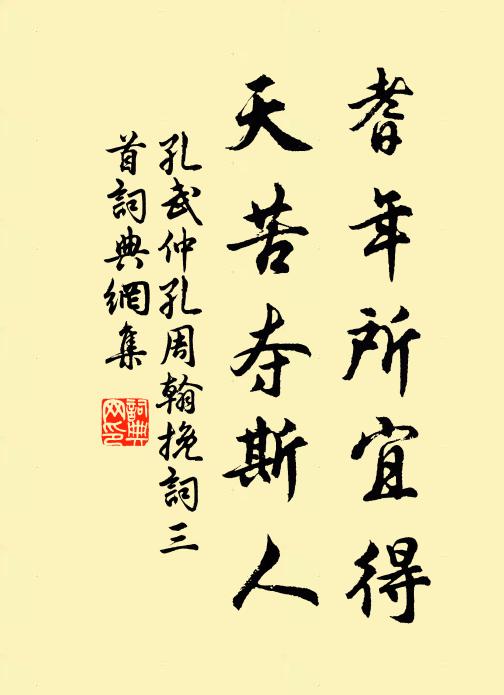 耆年所宜得
天苦夺斯人
孔武仲孔周翰挽詞三
首詞典網集
詞典
网印